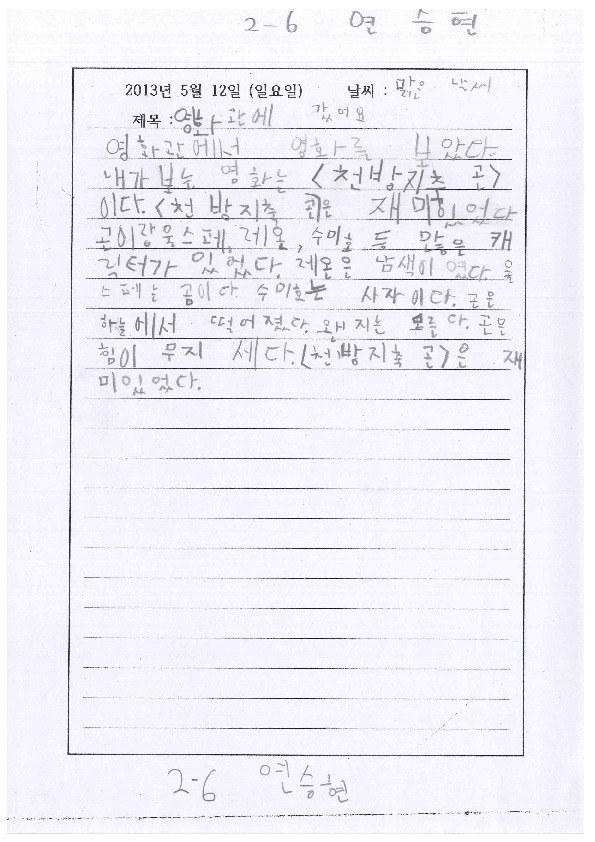 2-6 연 승 현
2013년 5월 12일 (일요일) 날씨 : 맑은 날씨
제목 : 영화관에 갔어요
영화관에서 영화를 보았다.
내가 보는 영화는 <천방지축 곤>
이다. <천방지축 곤>은 재미있었다
곤이랑 울스페, 레온, 수미호 등 많은 캐
릭터가 있었다. 레온은 남색이 였다. 울
스페는 곰이다. 수미호는 사자이다. 곤은
하늘에서 떨어졌다. 왠지는 모른다. 곤은
힘이 무지 세다. <천방지축 곤>은 재
미있었다.
2-6 연승현